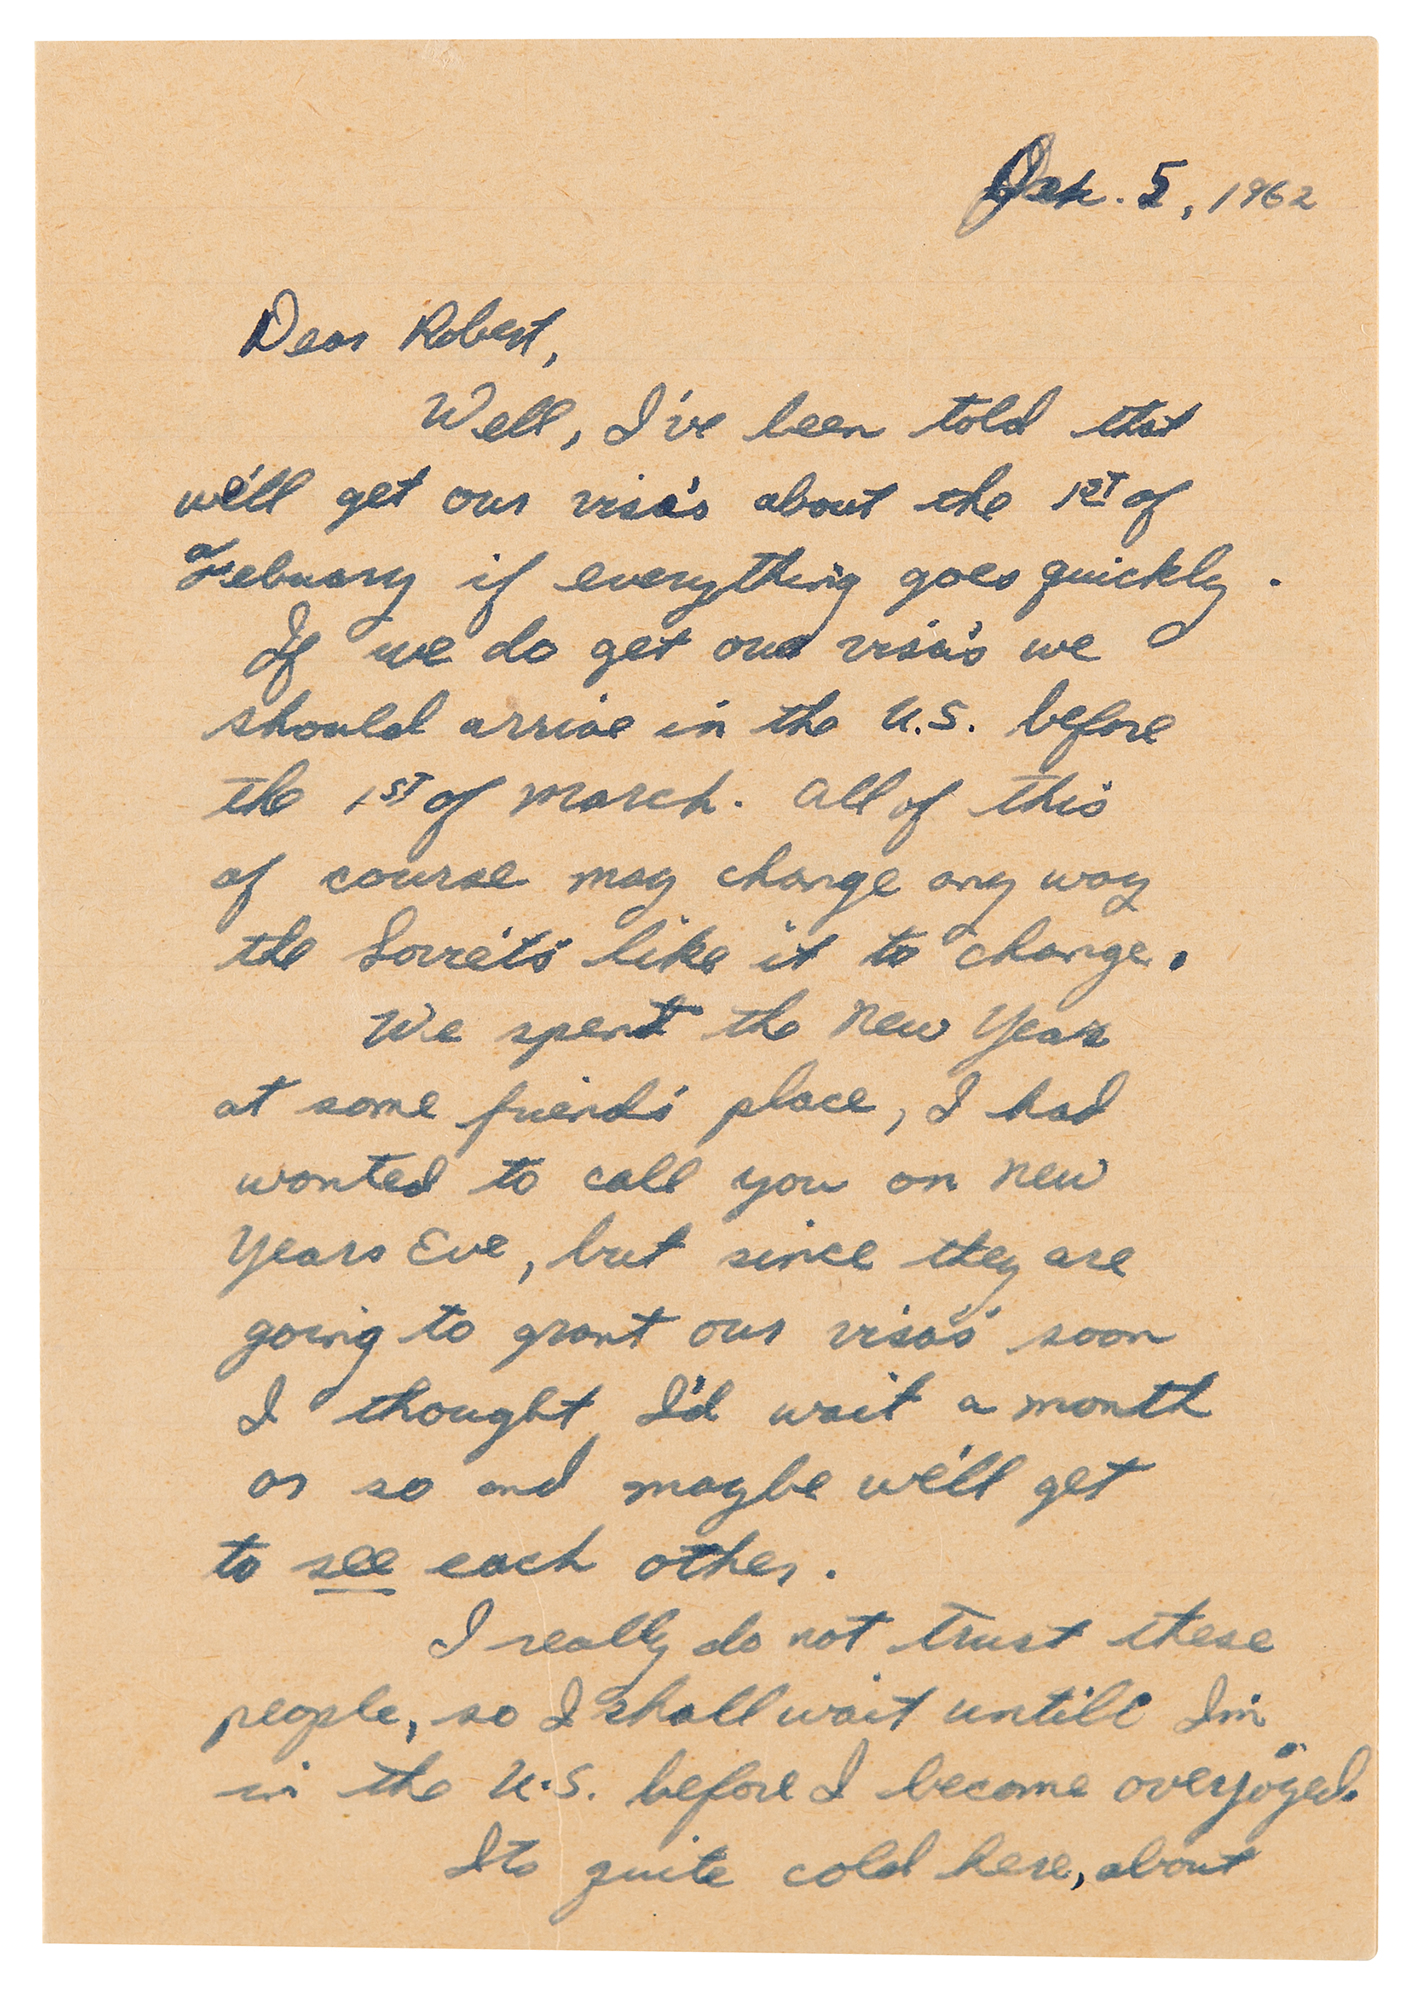 Jan. 5, 1962
Dear Robert,
Well, I've been told that
we'll get our visa's about the 1ST of
Febuary if everything goes quickly.
If we do get our visa's we
should arrive in the U.S. before
the 1ST of march. All of this
of course may change any way
the Soviets like it to change.
We spent the New Year
at some friends' place, I had
wanted to call you on New
Years Eve, but since they are
going to grant our visas' soon
I thought I'd wait a month
or so and maybe we'll get
to see each other.
I really do not trust these
people, so I shall wait untill I'm
in the U.S. before I become overjoyed.
Its quite cold here, about